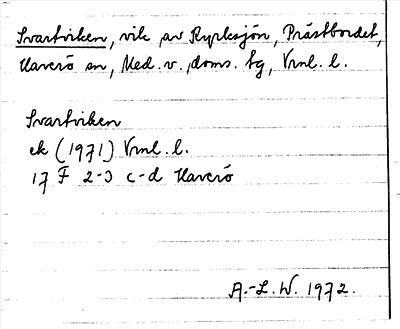 Svartviken, vik av Ryrksjön, Prästbordet,
Haverö sn, Med. v., doms. tg, Vrnl. l.
Svartviken
ek (1971) Vrnl. l.
17 F 2-3 c-d Haverö
A.-L. W. 1972.